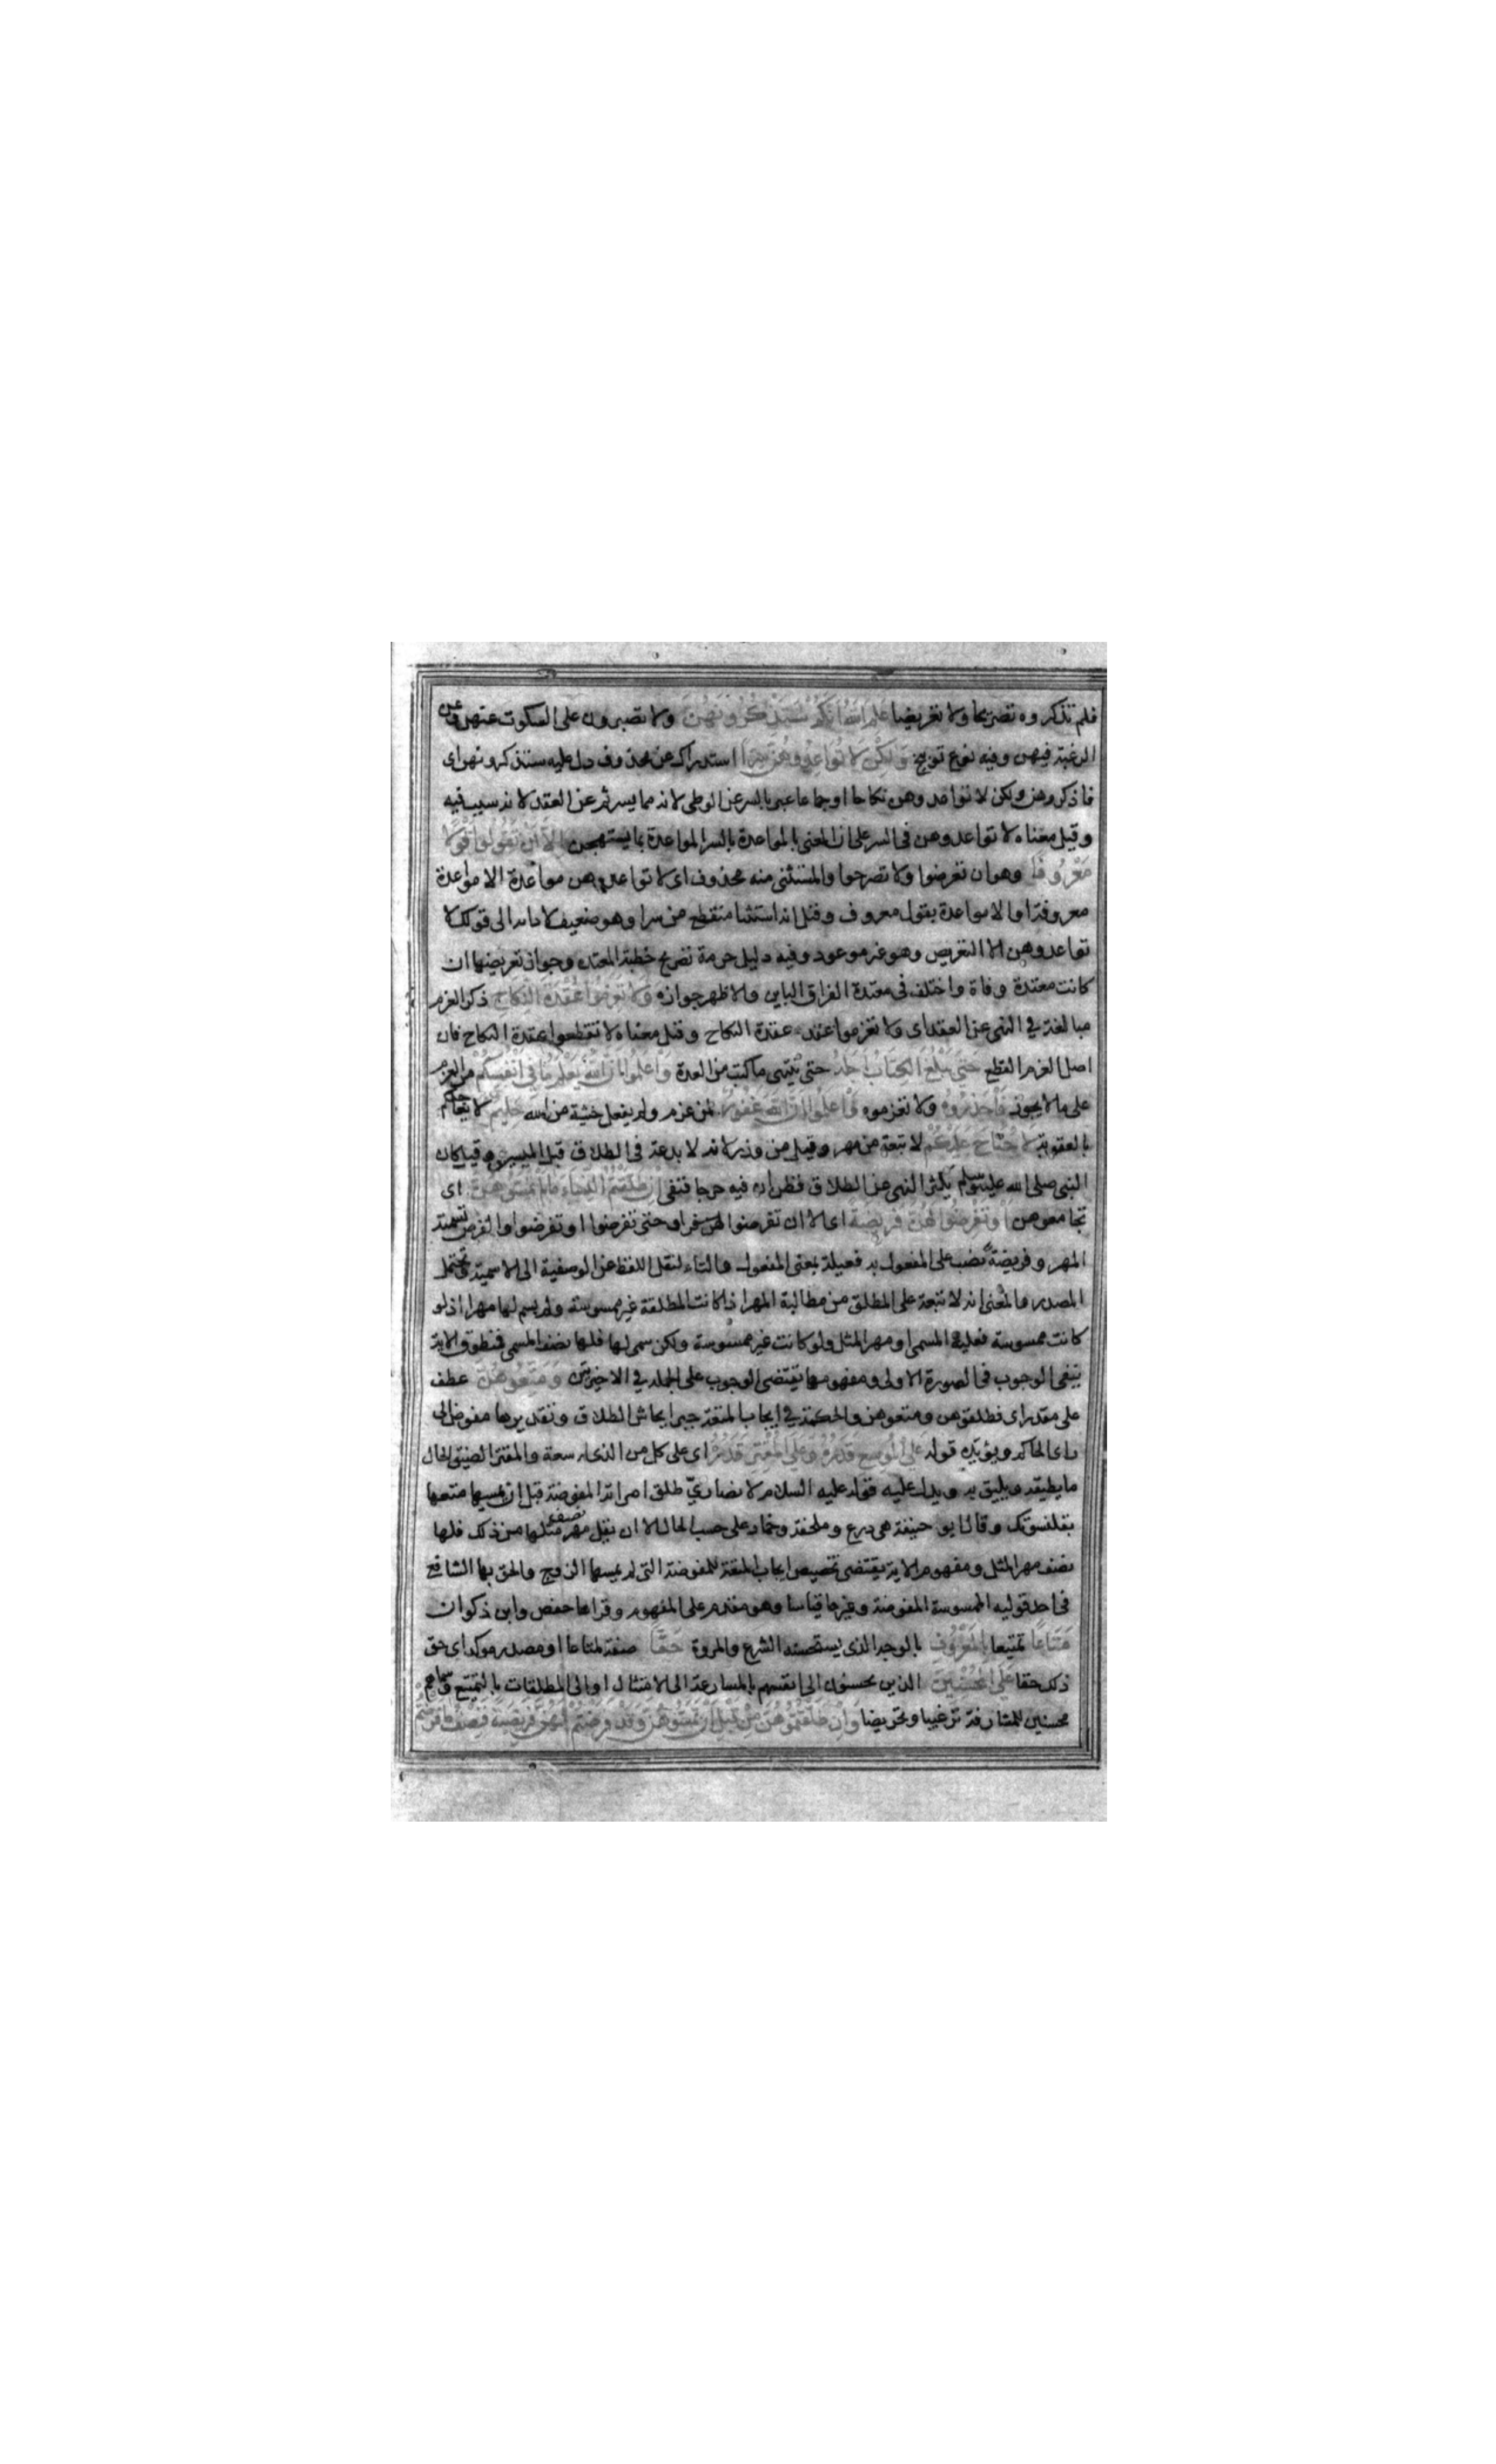 فلم تذكروه تصريحا ولا تعريضا علم الله انكم ستذكرونهن ولا تصبرون على السكوت عنهن وعن
الرغبة فيهن وفيه نوع توبيخ ولكن لا تواعدوهن سرا استدراك عن محذوف دل عليه ستذكرونهن اى
فاذكروهن ولكن لا تواعدوهن نكاحا او جماعا عبر بالسر عن الوطى لانه مما يسر ثم عن العقد لانه سبب فيه
وقيل معناه لا تواعدوهن فى السر على ان المعنى بالمواعدة بالسر المواعدة بما يستهجن الا ان تقولوا قولا
معروفا وهو ان تعرضوا ولا تصرحوا والمستثنى منه محذوف اى لا تواعدوهن مواعدة الا مواعدة
معروفة او الا مواعدة بقول معروف وقيل انه استثنا منقطع من سرا وهو ضعيف لادائه الى قولك لا
تواعدوهن الا التعريض وهو غير موعود وفيه دليل حرمة تصريح خطبة المعتده وجواز تعريضها ان
كانت معتدة وفاة واختلف فى معتدة الفراق الباين والاظهر جوازه ولا تعزموا عقدة النكاح ذكر العزم
مبالغة في النهى عن العقد اى ولا تعزموا عقد عقدة النكاح وقيل معناه لا تقطعوا عقدة النكاح فان
اصل العزم القطع حتى يبلغ الكتاب اجله حتى ينتهى ما كتب من العدة واعلموا ان الله يعلم ما في انفسكم من العزم
على ما لا يجوز فاحذروه ولا تعزموه واعلموا ان الله غفور لمن عزم ولم يفعل خشية من الله حليم لا يعاجلكم
بالعقوبة لا جناح عليكم لا تبعة من مهر وقيل من وزر لانه لا بدعة فى الطلاق قبل المسيس وقيل كان
النبي صلى الله عليه وسلم يكثر النهى عن الطلاق فظن ان فيه حرجا فنفى ان طلقتم النساء ما لم تمسوهن اى
تجامعوهن او تفرضوا لهن فريضة اى الا ان تفرضوا او حتى تفرضوا او تفرضوا والفرض تسمية
المهر وفريضة نصب على المفعول به فعيلة بمعنى المفعول والتاء لنقل اللفظ عن الوصفية الى الاسمية ويحتمل
المصدر والمعنى انه لا تبعة على المطلق من مطالبة المهر اذا كانت المطلقة غير ممسوسة ولم يسم لها مهرا اذ لو
كانت ممسوسة فعليه المسمى او مهر المثل ولو كانت غير ممسوسة ولكن سمى لها فلها نصف المسمى فمنطوق الاية
ينفى الوجوب فى الصورة الاولى ومفهومها يقتضى الوجوب على الجملة في الاخيرتين ومتعوهن عطف
على مقدر اى فطلقوهن ومتعوهن والحكمة في ايجاب المتعة جبر ايحاش الطلاق وتقديرها مفوض الى
راى الحاكم ويؤيده قوله على الموسع قدره وعلى المقتر قدره اى على كل من الذى له سعة والمقتر الضيق الحال
ما يطيقه ويليق به ويدل عليه قوله عليه السلام لانصاري طلق امراته المفوضة قبل ان يمسها متعها
بقلنسوتك وقال ابو حنيفة هى درع وملحفة وخمار على حسب الحال الا ان يقل نصف مهر مثلها من ذلك فلها
نصف مهر المثل ومفهوم الاية يقتضى تخصيص ايجاب المتعة للمفوضة التى لم يمسها الزوج والحق بها الشافعي
فى احد قوليه الممسوسة المفوضة وغيرها قياسا وهو مقدم على المفهوم وقراها حفص وابن ذكوان
متاعا تمتيعا بالمعروف بالوجه الذى يستحسنه الشرع والمروة حقا صفة لمتاعا او مصدر موكد اى حق
ذلك حقا على المحسنين الذين يحسنون الى انفسهم بالمسارعة الى الامتثال او الى المطلقات بالتمتيع وسماهم
محسنين للمشارفة ترغيبا وتحريضا وان طلقتموهن من قبل ان تمسوهن وقد فرضتم لهن فريضة فنصف ما فرضتم